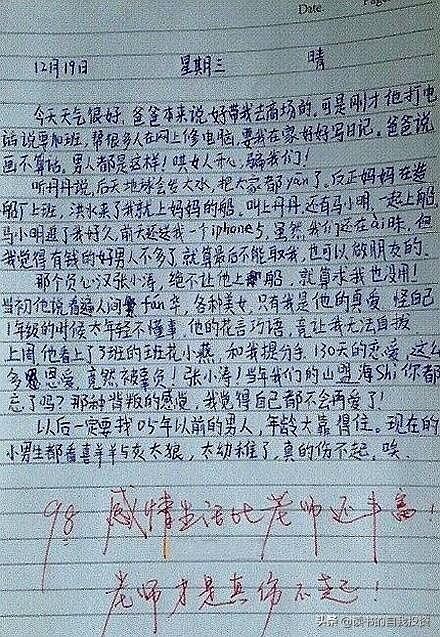 Date.
Page
12月19日 星期三 晴
今天天气很好，爸爸本来说好带我去商场的，可是刚才他打电
话说要加班，帮很多人在网上修电脑，要我在家好好写日记。爸爸说
画不算话，男人都是这样！哄女人开心，骗我们！
听丹丹说，后天地球会发大水，把大家都yān了。反正妈妈在造
船厂上班，洪水来了我就上妈妈的船。叫上丹丹还有马小明，一起上船，
马小明追了我好久，前天还送我一个iphone5，虽然我们还在ài昧，但
我觉得有钱的好男人不多了，就算最后不能取我，也可以做朋友的。
那个负心汉张小涛，绝不让他上船，就算求我也没用！
当初他说看遍人间fán华，各种美女，只有我是他的真爱，怪自己
1年级的时候太年轻不懂事，他的花言巧语，竟让我无法自拔
上周他看上了3班的班花小燕，和我提分手，130天的恋爱，这么
多恩爱，竟然被辜负！张小涛！当年我们的山盟海Shì你都
忘了吗？那种背叛的感觉，我觉得自己都不会再爱了！
以后一定要找05年以前的男人，年龄大靠得住。现在的
小男生都看喜羊羊与灰太狼，太幼稚了，真的伤不起，唉。
98 感情生活比老师还丰富！
老师才是真伤不起！
头条@读书的自我投资